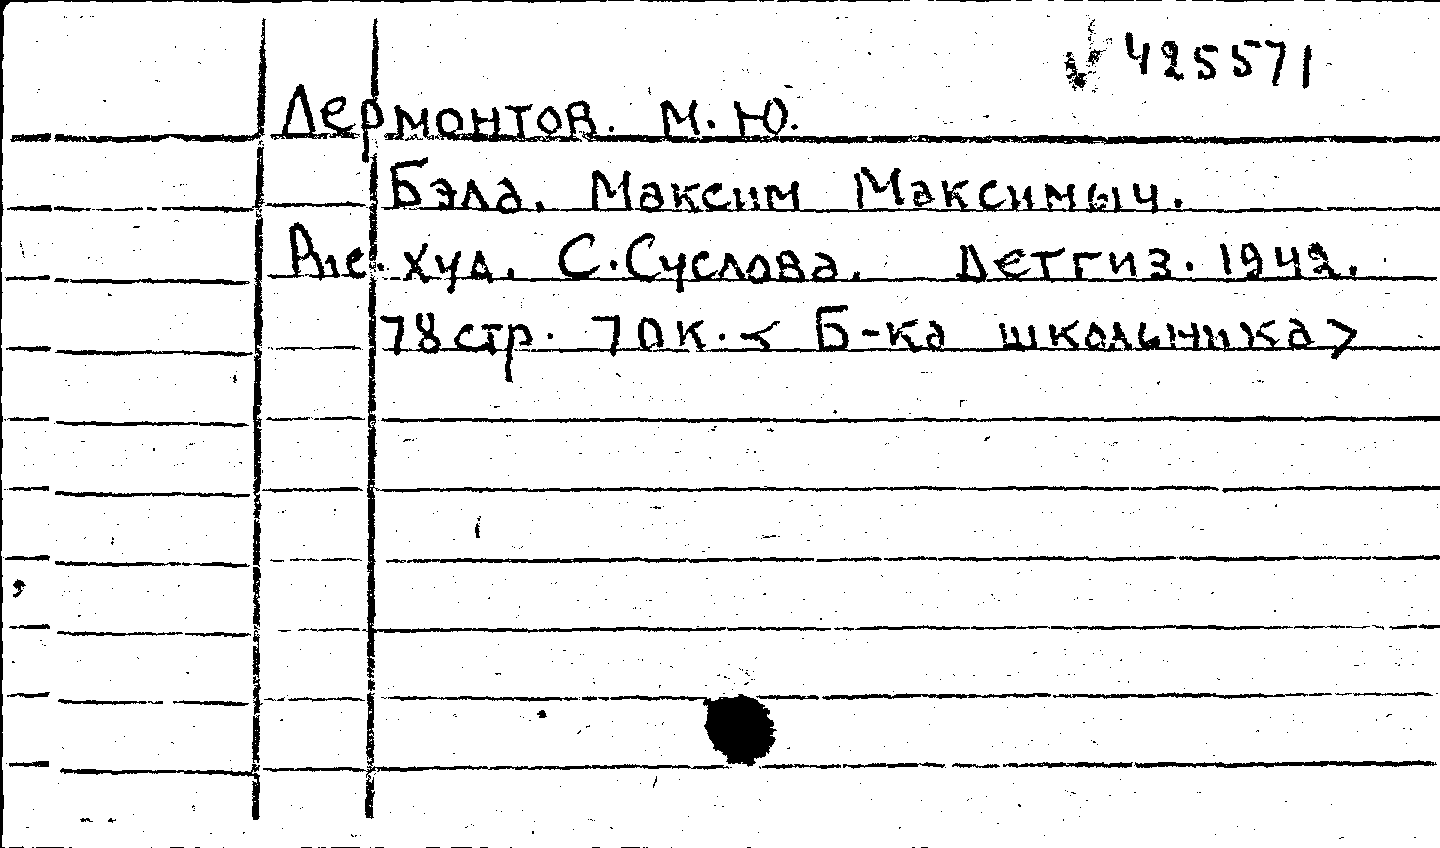 425571
Лермонтов. М. Ю.
Бэла. Максим Максимыч.
Рис. худ. С. Суслова. Детгиз. 1942.
78 стр. 70 к. < Б-ка школьника >